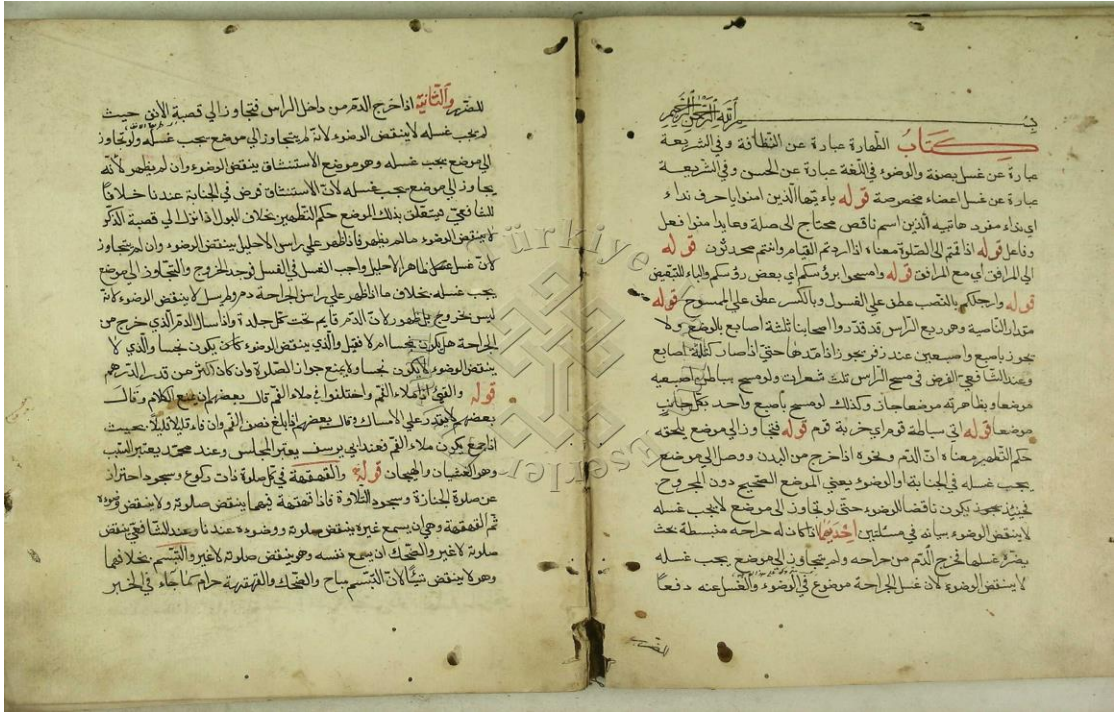 بسم الله الرحمن الرحيم
كتاب الطهارة عبارة عن النظافة وفي الشريعة
عبارة عن غسل بصفة والوضوء في اللغة عبارة عن الحسن وفي الشريعة
عبارة عن غسل اعضاء مخصوصة قوله ياءيتها الذين امنوا يا حرف نداء
اي نداء مفرد ها تنبيه الذين اسم ناقص محتاج الى صلة وعايد امنوا فعل
وفاعل قوله اذا قمتم الى الصلوة معناه اذا اردتم القيام وانتم محدثون قوله
الى المرافق اي مع المرافق قوله وامسحوا برؤسكم اي بعض رؤسكم والباء للتبعيض
قوله وارجلكم بالنصب عطف علي المغسول وبالكسر عطف علي الممسوح قوله
مقدار الناصية وهو ربع الرأس قد قدروا اصحابنا ثلثة اصابع بالوضع ولا
يجوز باصبع واصبعين عند زفر يجوز اذا مدها حتي اذا صار كثلثة اصابع
وعند الشافعي الفرض في مسح الرأس ثلث شعرات ولو مسح بباطن اصبعه
موضعا وبظاهرته موضعا جاز وكذلك لو مسح باصبع واحد بكل جانب
موضعا قوله اتي سباطة قوم اي خربة قوم قوله فتجاوز الي موضع يلحقه
حكم التطهير معناه ان الدم ونحوه اذا خرج من البدن ووصل الي موضع
يجب غسله في الجنابة او الوضوء يعني الموضع الصحيح دون المجروح
فحينئذ يكون ناقضا للوضوء حتي لو تجاوز الي موضع لا يجب غسله
لاينقض الوضوء بيانه في مسئلتين احديهما اذا كان له جراحة منبسطة بحث
يضره غسلها فخرج الدم من جراحه ولم يتجاوز الي موضع يجب غسله
لا ينقض الوضوء لان غسل الجراحة موضوع في الوضوء والغسل عنه دفعا
للضرر
للضرر والثانية اذا خرج الدم من داخل الراس فتجاوز الي قصبة الأنف حيث
لم يجب غسله لاينقض الوضوء لانه لم يتجاوز الي موضع يجب غسله ولو تجاوز
الي موضع يجب غسله وهو موضع الاستنشاق ينقض الوضوء وان لم يظهر لأنه
يجاوز الي موضع يجب غسله لان الاستنشاق فرض في الجنابة عندنا خلافا
للشافعي فيتعلق بذلك الموضع حكم التطهير بخلاف البول اذا نزل الي قصبة الذكر
لا ينقض الوضوء ما لم يظهر فاذا ظهر علي راس الاحليل ينقض الوضوء وان لم يتجاوز
لان غسل ظاهر الاحليل واجب الغسل في الغسل فوجد الخروج والتجاوز الي موضع
يجب غسله بخلاف ما اذا ظهر علي راس الجراحة دم ولم يسل لاينقض الوضوء لانه
ليس بخروج بل ظهور لان الدم قايم تحت كل جلدة واذا سال الدم الذي خرج من
الجراحة هل يكون نجسا ام لا قيل والذي ينقض الوضوء يكون نجسا والذي لا
ينقض الوضوء لا يكون نجسا ولا يمنع جواز الصلوة وان كان اكثر من قدر الدرهم
قوله والقئ اذا ملاء الفم واختلفوا في ملاء الفم قال بعضهم ان يمنع الكلام وقال
بعضهم لا يقدر علي الامساك وقال بعضهم اذا بلغ نصف الفم وان قاء قليلا قليلا بحيث
اذا جمع يكون ملاء الفم فعند ابي يوسف يعتبر المجلس وعند محمد يعتبر السبب
وهو الغشيان والهيجان قوله والقهقهة في كل صلوة ذات ركوع وسجود احتراز
عن صلوة الجنازة وسجود التلاوة فاذا قهقهة فيهما ينقض صلوته ولا ينقض وضوءه
ثم القهقهة وهي ان يسمع غيره ينقض صلوته ووضوءه عندنا وعند الشافعي ينقض
صلوته لاغير والضحك ان يسمع نفسه وهو ينقض صلوته لاغير والتبسم بخلافهما
وهو لا ينقض شيئا لان التبسم مباح والضحك والقهقهة حرام كما جاء في الخبر